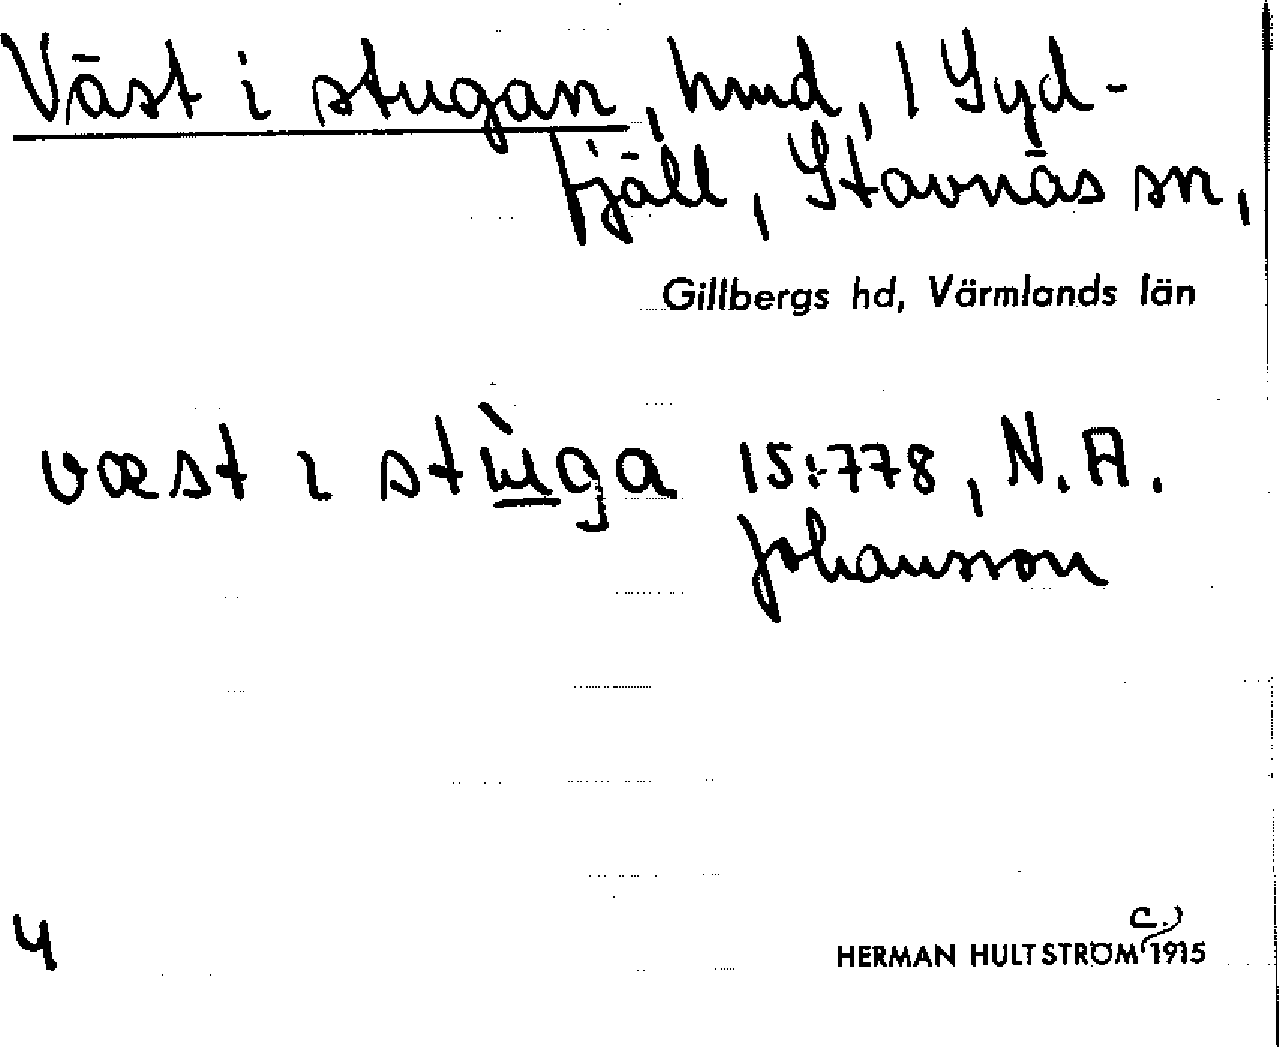 Väst i stugan, hmd, 1 Syd-
fjäll, Stavnäs sn,
Gillbergs hd, Värmlands län
væst ı stùga 15:778, N. A.
Johansson
4
HERMAN HULTSTRÖM c.) 1915